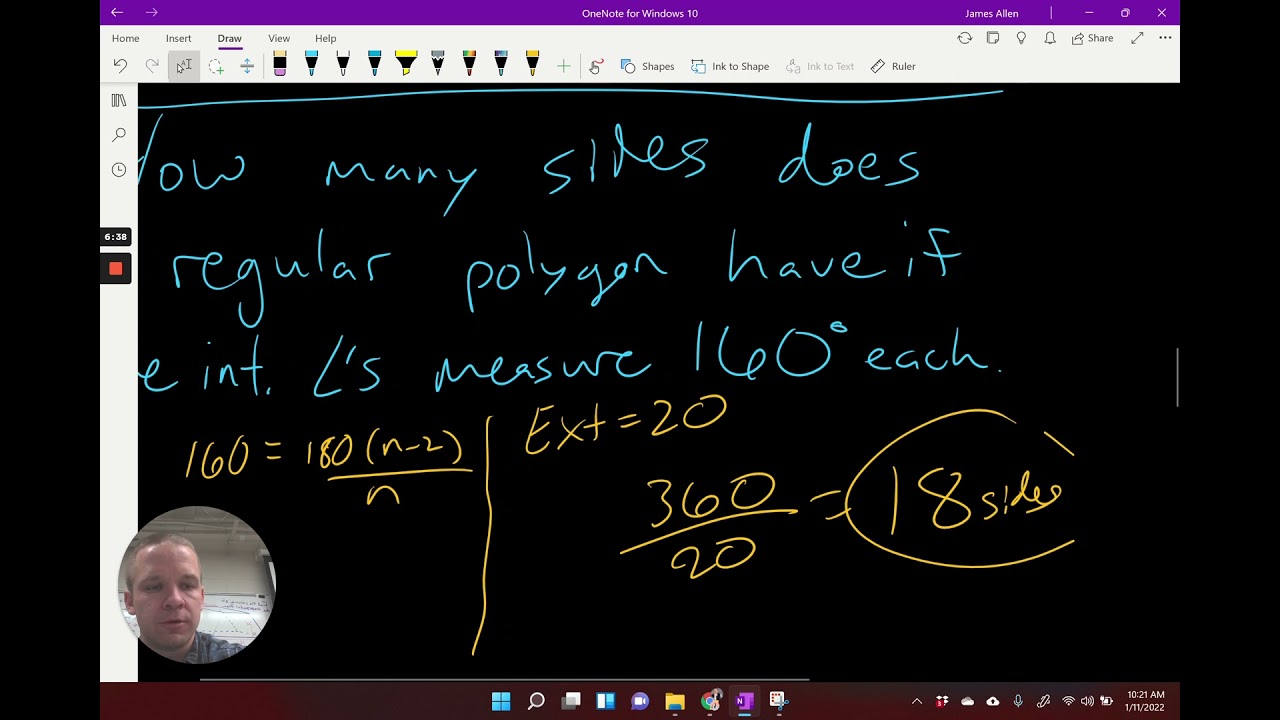 OneNote for Windows 10
James Allen
Home Insert Draw View Help
Shapes Ink to Shape Ink to Text Ruler Share
How many sides does
regular polygon have if
e int. ∠'s measure 160° each.
6:38
160 = 180(n-2)
n
Ext = 20
360
20
= 18 sides
10:21 AM
1/11/2022